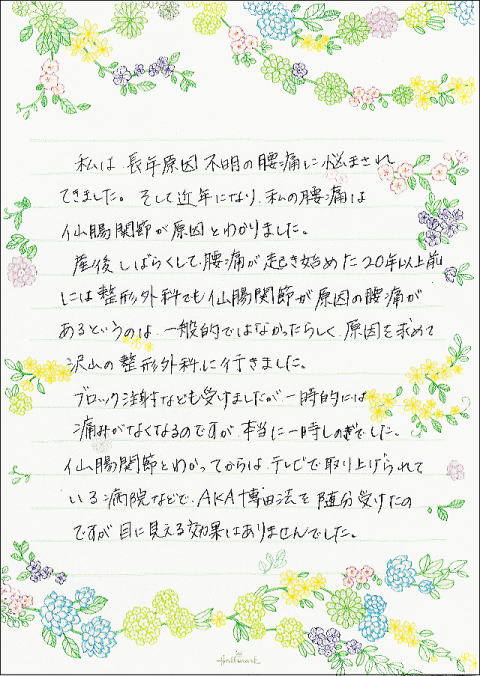 私は、長年原因不明の腰痛に悩まされ
てきました。そして近年になり、私の腰痛は
仙腸関節が原因とわかりました。
産後しばらくして腰痛が起き始めた20年以上前
には整形外科でも仙腸関節が原因の腰痛が
あるというのは、一般的ではなかったらしく、原因を求めて
沢山の整形外科に行きました。
ブロック注射なども受けましたが一時的には
痛みがなくなるのですが、本当に一時しのぎでした。
仙腸関節とわかってからは、テレビで取り上げられて
いる病院などで、AKA博田法を随分受けたの
ですが目に見える効果はありませんでした。
Hallmark